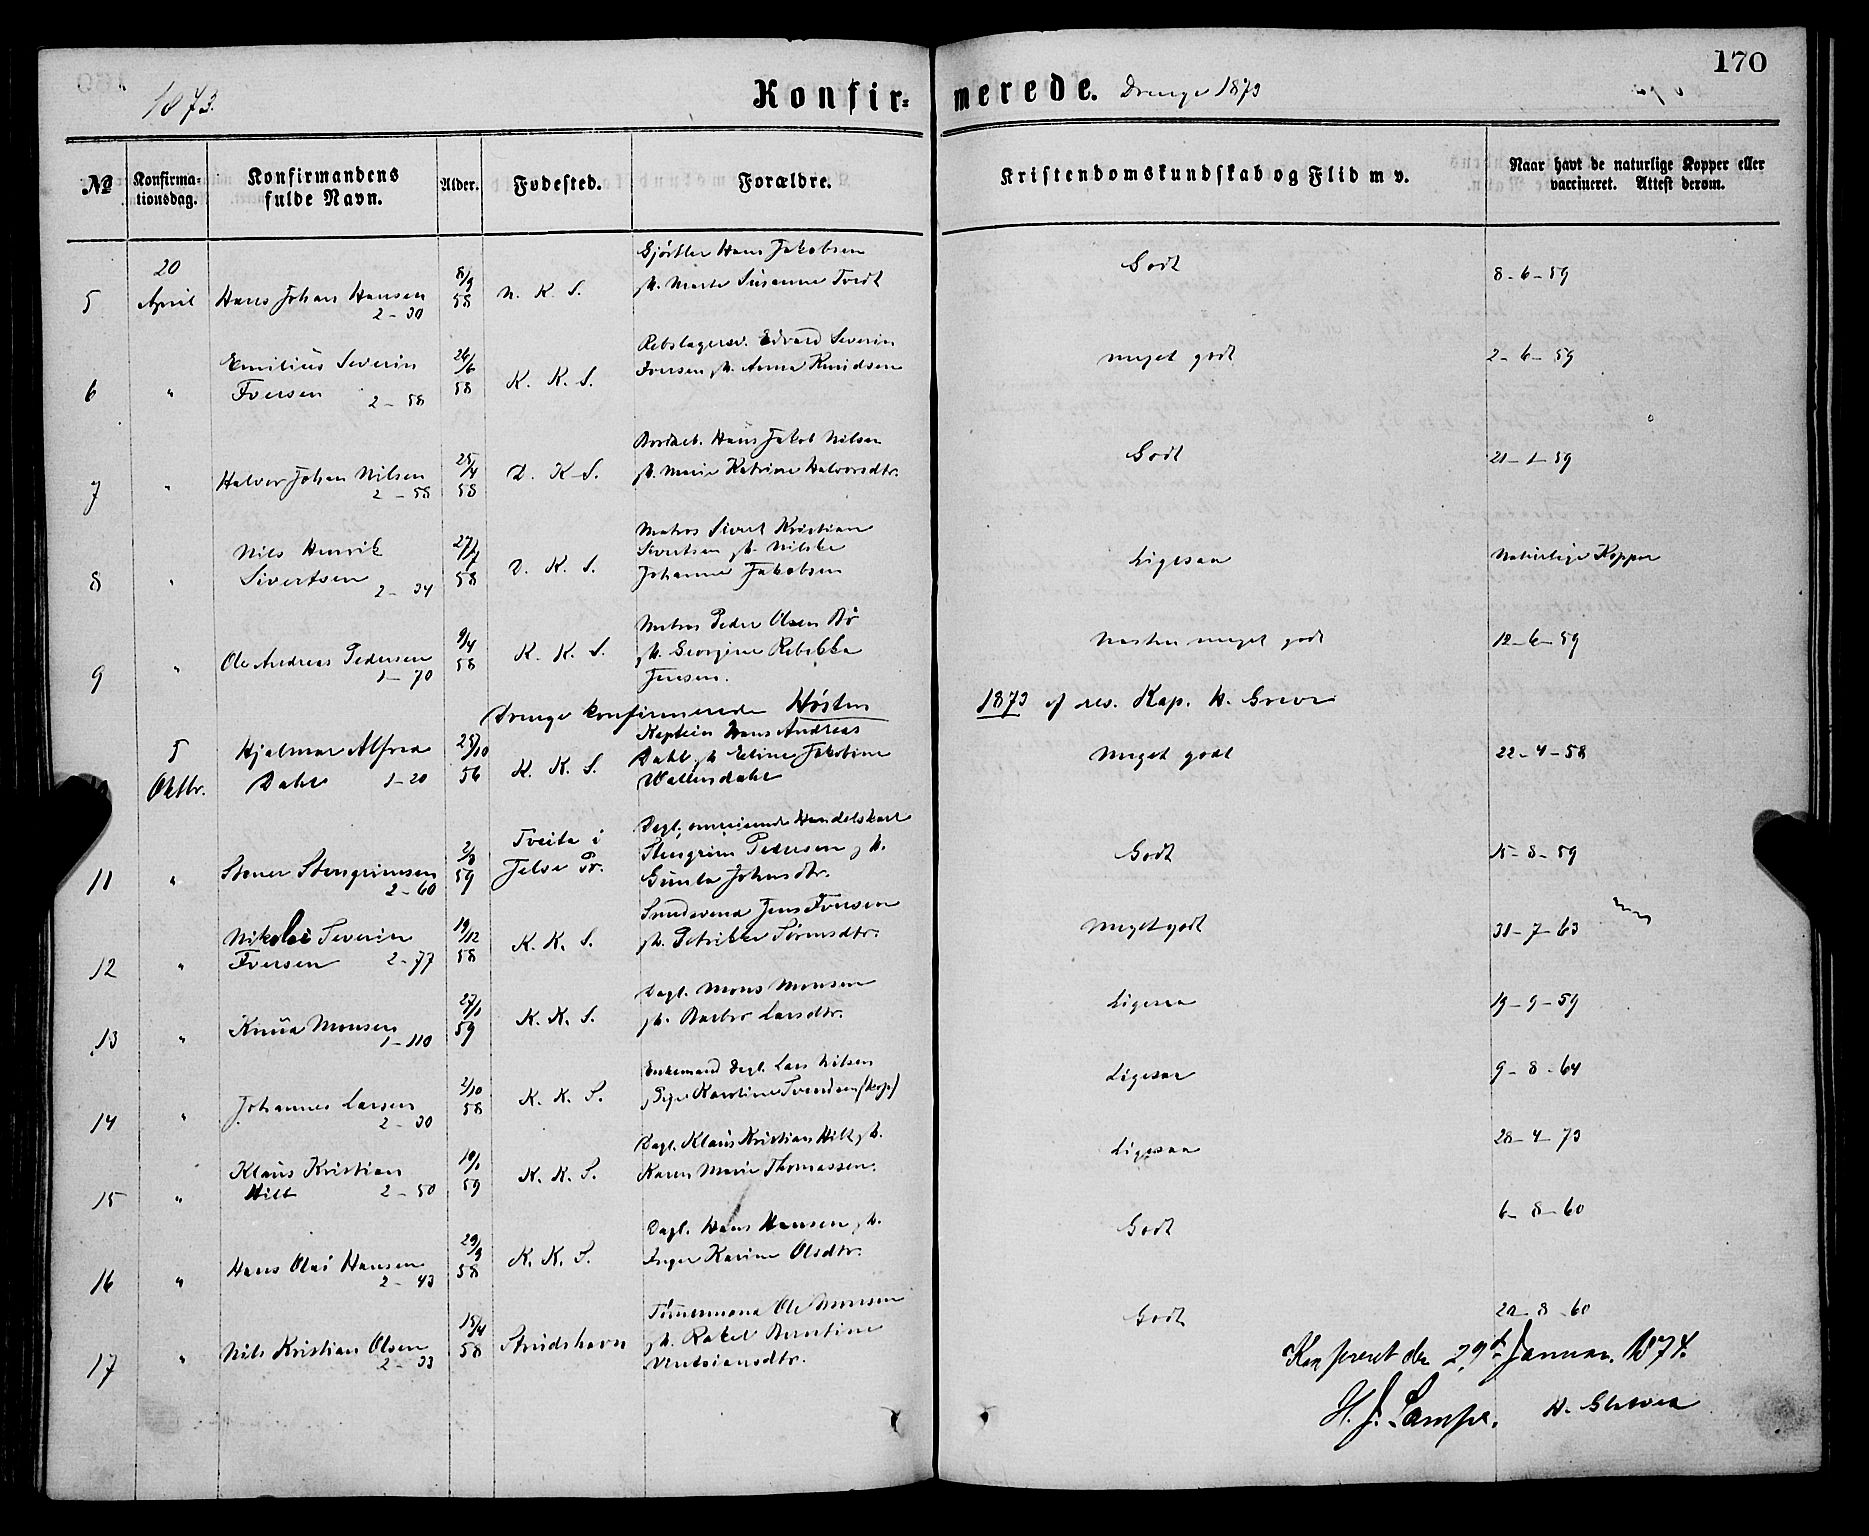 170
1873.
Konfir-
merede. Drenge 1873
№
Konfirma-
tionsdag.
Konfirmandens
fulde Navn.
Alder.
Fødested.
Forældre.
Kristendomskundskab og Flid m v.
Naar havt de naturlige Kopper eller
vaccineret. Attest derom.
5
20
April
Hans Johan Hansen
2-30
8/9
58
N. K. S.
Gjørtler Hans Jakobsen
Marte Susanne Tvedt
Godt
8-6-59
6
"
Emilius Severin
Iversen
2-58
24/6
58
K. K. S.
Rebslagersv. Edvard Severin
Iversen Anna Knudsen
meget godt
2-6-59
7
"
Halvor Johan Nilsen
2-58
25/4
58
D. K. S.
Hans Jakob Nilsen
Marie Katrine Halvorsdtr.
Godt
21-1-59
8
"
Nils Henrik
Sivertsen
2-34
58
D. K. S.
Matros Sivert Kristian
Sivertsen
Johanne Jakobsen
Ligesaa
Naturlige Kopper
9
"
Ole Andreas Pedersen
1-70
9/4
58
K. K. S.
Matros Peder Olsen
Georgine Rebekka
Jensen.
Næsten meget godt
12-6-59
Drenge konfirmerede Høsten
1873 af res. Kap. H. Greve
5
Oktbr.
Hjalmar Alfred
Dahl
1-20
25/10
56
K. K. S.
Kaptein Hans Andreas
Dahl Eline Jakobine
Wallensdahl
Meget godt
22-4-58
11
"
Stener Stengrimsen
2-60
2/8
59
Tveita i
Jelse Pr.
Handelskarl
Stengrim Pedersen
Gunla Johnsdtr.
Godt
15-8-59
12
"
Nikolai Severin
Iversen
2-77
19/12
58
K. K. S.
Smedsvend Jens Iversen
Petrikke Sørensdtr.
Meget godt
31-7-63
13
"
Knud Monsen
1-110
27/1
59
K. K. S.
Dagl. Mons Monsen
Barbro Larsdtr.
Ligesaa
19-9-59
14
"
Johannes Larsen
2-30
2/10
58
K. K. S.
Enkemand Dagl. Lars Nilsen
Pige Karoline Svendsen
Ligesaa
9-8-64
15
"
Klaus Kristian
Hilt
2-50
19/1
59
K. K. S.
Dagl. Klaus Kristian Hilt
Karen Marie Thomassen.
Ligesaa
28-4-73
16
"
Hans Olai Hansen
2-43
29/9
58
K. K. S.
Dagl. Hans Hansen
Inger Karine Olsdtr.
Godt
6-8-60
17
"
Nils Kristian Olsen
2-33
15/4
58
Strudshavn
Tømmermand Ole Monsen
Rakel Berntine
Godt
21-8-60
Konfereret den 29d Januar 1874.
H. J. Lampe.
H. Greve